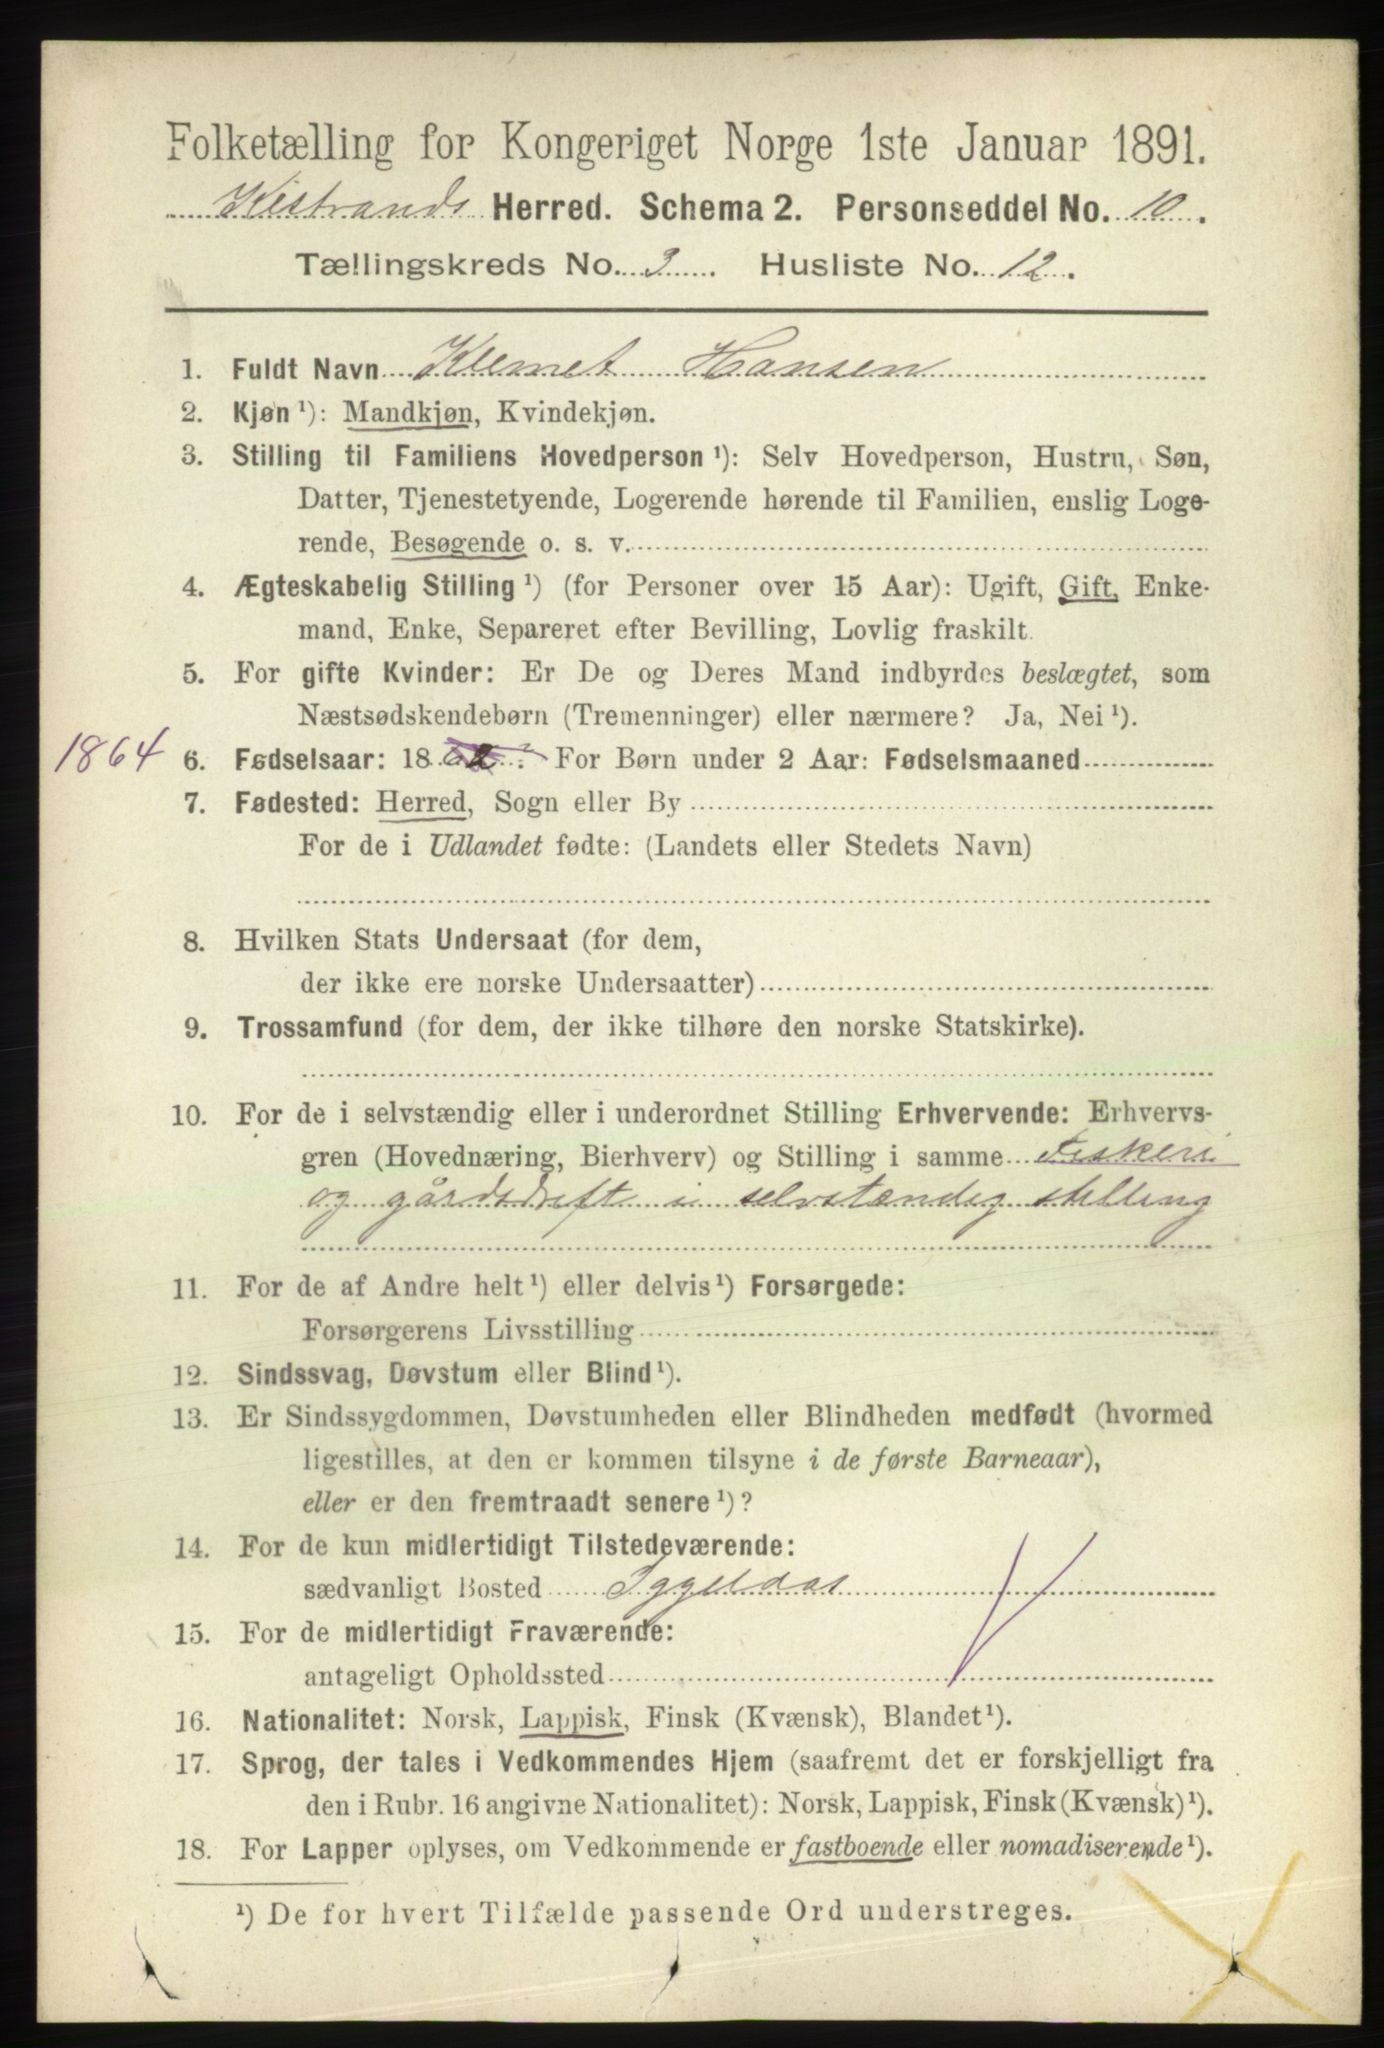 Folketælling for Kongeriget Norge 1ste Januar 1891.
Kistrands Herred. Schema 2. Personseddel No. 10.
Tællingskreds No. 3. Husliste No. 12.
1. Fuldt Navn Klemet Hansen
2. Kjøn ¹): Mandkjøn, Kvindekjøn.
3. Stilling til Familiens Hovedperson ¹): Selv Hovedperson, Hustru, Søn,
Datter, Tjenestetyende, Logerende hørende til Familien, enslig Loge-
rende, Besøgende o. s. v.
4. Ægteskabelig Stilling ¹) (for Personer over 15 Aar): Ugift, Gift, Enke-
mand, Enke, Separeret efter Bevilling, Lovlig fraskilt.
5. For gifte Kvinder: Er De og Deres Mand indbyrdes beslægtet, som
Næstsødskendebørn (Tremenninger) eller nærmere? Ja, Nei ¹).
1864 6. Fødselsaar: 18 62. For Børn under 2 Aar: Fødselsmaaned
7. Fødested: Herred, Sogn eller By
For de i Udlandet fødte: (Landets eller Stedets Navn)
8. Hvilken Stats Undersaat (for dem,
der ikke ere norske Undersaatter)
9. Trossamfund (for dem, der ikke tilhøre den norske Statskirke).
10. For de i selvstændig eller i underordnet Stilling Erhvervende: Erhvervs-
gren (Hovednæring, Bierhverv) og Stilling i samme Fiskeri
og gårdsdrift i selvstændig stilling
11. For de af Andre helt ¹) eller delvis ¹) Forsørgede:
Forsørgerens Livsstilling
12. Sindssvag, Døvstum eller Blind ¹).
13. Er Sindssygdommen, Døvstumheden eller Blindheden medfødt (hvormed
ligestilles, at den er kommen tilsyne i de første Barneaar),
eller er den fremtraadt senere ¹)?
14. For de kun midlertidigt Tilstedeværende:
sædvanligt Bosted Iggeldas
15. For de midlertidigt Fraværende:
antageligt Opholdssted
16. Nationalitet: Norsk, Lappisk, Finsk (Kvænsk), Blandet ¹).
17. Sprog, der tales i Vedkommendes Hjem (saafremt det er forskjelligt fra
den i Rubr. 16 angivne Nationalitet): Norsk, Lappisk, Finsk (Kvænsk) ¹).
18. For Lapper oplyses, om Vedkommende er fastboende eller nomadiserende ¹).
¹) De for hvert Tilfælde passende Ord understreges.